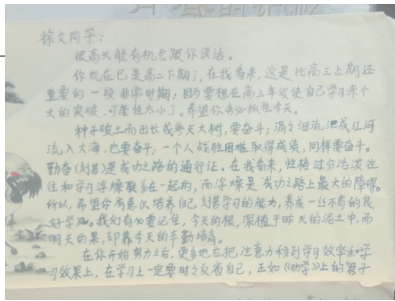 徐文同学:
很高兴能有机会跟你谈话。
你现在已是高二下期了,在我看来,这是比高三上期还
重要的一段非常时期,因为要想在高三年级使自己学习来个
大的突破,可能性太小了。希望你务必抓住今天。
种子破土而出长成参天大树,要奋斗;涓涓细流汇成江河
流入大海,也要奋斗,一个人战胜困难取得成绩,同样要奋斗。
勤奋(刻苦)是成功之路的通行证。在我看来,
往和学习浮燥联系在一起的,而浮燥是成功之路上最大的障碍。
所以,希望你有意识培养自己刻苦学习的能力,养成一丝不苟的良
好学风。我们有必要记住,今天的根,深植于昨天的泥土中,而
明天的果,却靠今天的辛勤培育。
在你开始努力之后,更多地在把注意力移到学习效率和学
习效果上,在学习上一定要时时反省自己,正如《劝学》上的君子